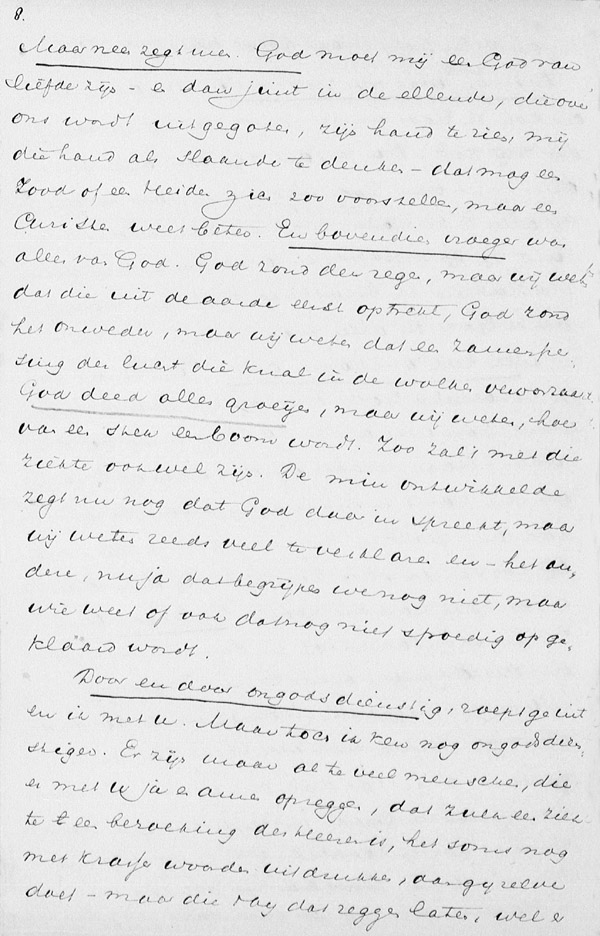 8.
Maar nee zegt men. God moet mij een God van
liefde zijn – en dan juist in de ellende, die over
ons wordt uitgegoten, zijn hand te zien, mij
die hand als slaande te denken – dat mag een
Jood of een Heiden zich zoo voorstellen, maar een
Christen weet beter. En bovendien vroeger was
alles van God. God zond den regen, maar wij weten
dat die uit de aarde eerst optrekt, God zond
het onweder, maar wij weten dat een zamenper-
sing der lucht die knal in de wolken veroorzaakt.
God deed alles groeijen, maar wij weten, hoe
van een stek een boom wordt. Zoo zal 't met die
ziekte ook wel zijn. De min ontwikkelde
zegt nu nog dat God daar in spreekt, maar
wij weten reeds veel te verklaren en – het an-
dere, nu ja dat begrijpen we nog niet, maar
wie weet of ook dat nog niet spoedig opge-
klaard wordt.
Door en door ongodsdienstig, roept ge uit
en ik met u. Maar toch ik ken nog ongodsdien-
stiger. Er zijn maar al te veel menschen, die
er met u ja en amen op zeggen, dat zulk een ziek-
te een bezoeking des Heeren is, het soms nog
met krasse woorden uitdrukken, dan gij zelve
doet – maar die 't bij dat zeggen laten, wel